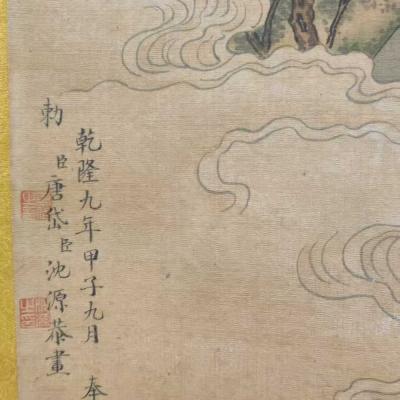 乾隆九年甲子九月 奉
勅 臣唐岱臣沈源恭畫